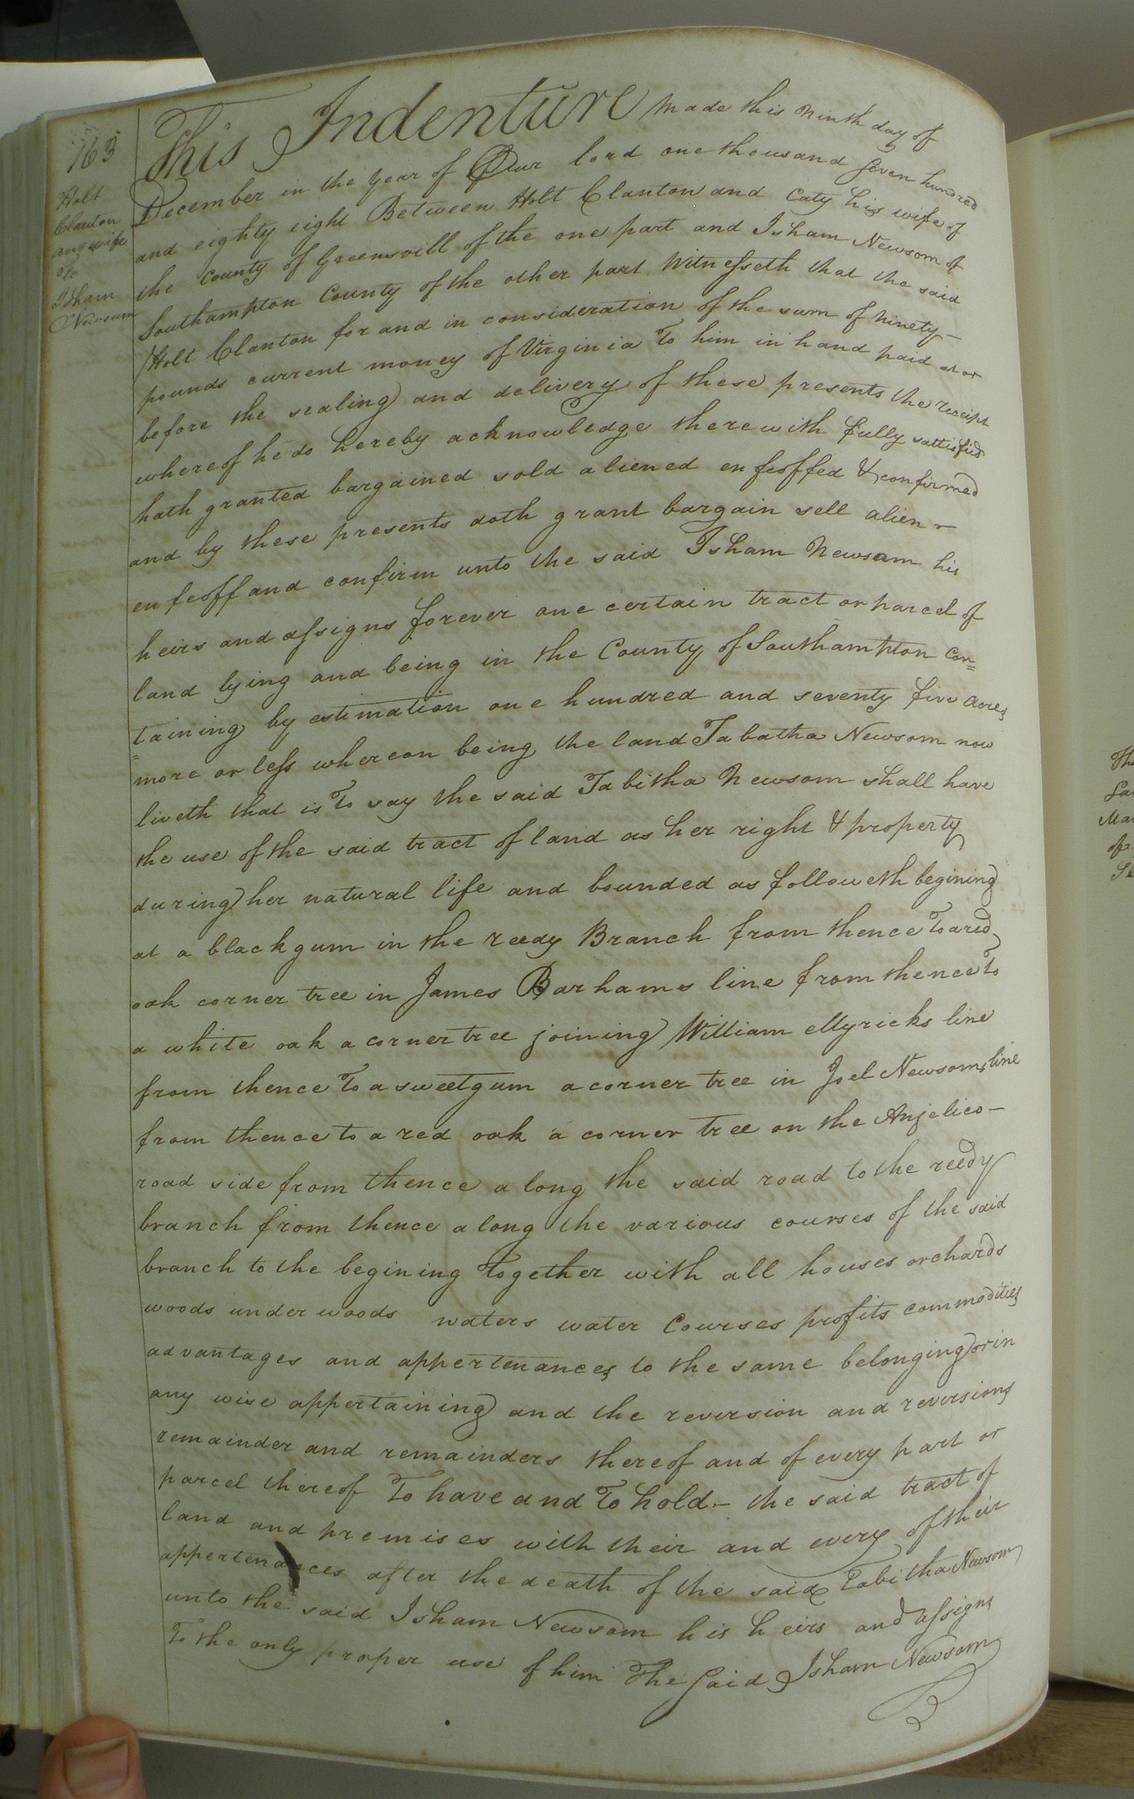 163
Holt
Clanton
and wife
To
Isham
Newsum
This Indenture made this ninth day of
December in the year of Our lord one thousand seven hundred
and eighty eight Between Holt Clanton and Caty his wife of
the County of Greensvill of the one part and Isham Newsom of
Southampton County of the other part Witnesseth that the said
Holt Clanton for and in consideration of the sum of ninety-
pounds current money of Virginia To him in hand paid at or
before the sealing and delivery of these presents the receipt
whereof he do hereby acknowledge therewith fully sattisfied
hath granted bargained sold aliened enfeoffed & confirmed
and by these presents doth grant bargain sell alien-
enfeoff and confirm unto the said Isham Newsam his
heirs and assigns forever one certain tract or parcel of
land lying and being in the County of Southampton Con=
=taining by estimation one hundred and seventy five acres
more or less whereon being the land Tabatha Newsom now
liveth that is To say the said Tabitha Newsom shall have
the use of the said tract of land as her right & property
during her natural life and bounded as followeth begining
at a black gum in the reedy Branch from thence To a red
oak corner tree in James Barhams line from thence To
a white oak a corner tree joining William Myricks line
from thence To a sweetgum a corner tree in Joel Newsoms line
from thence to a red oak a corner tree on the Anjelico-
road side from thence along the said road to the reedy
branch from thence along the various courses of the said
branch to the begining Together with all houses orchards
woods under woods waters water Courses profits commodities
advantages and appertenances to the same belonging or in
any wise appertaining and the reversion and reversions
remainder and remainders thereof and of every part or
parcel thereof To have and To hold- the said tract of
land and premises with their and every of their
appertenances after the death of the said Tabitha Newsom
unto the said Isham Newsom his heirs and assigns
To the only proper use of him The Said Isham Newsom